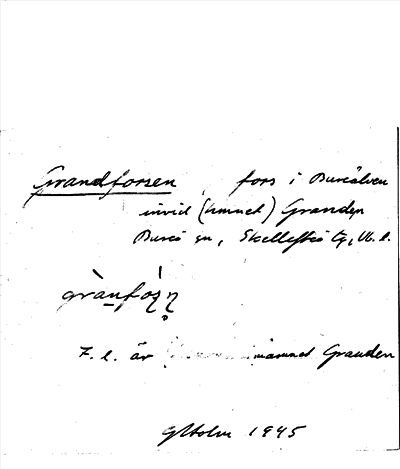 Grandforsen fors i Bureälven
invid (hemmet) Granden
Bureå sn, Skellefteå tg, Vb. l.
grànfó̱ṣṇ
F. l. är namnet Granden
G Holm 1945